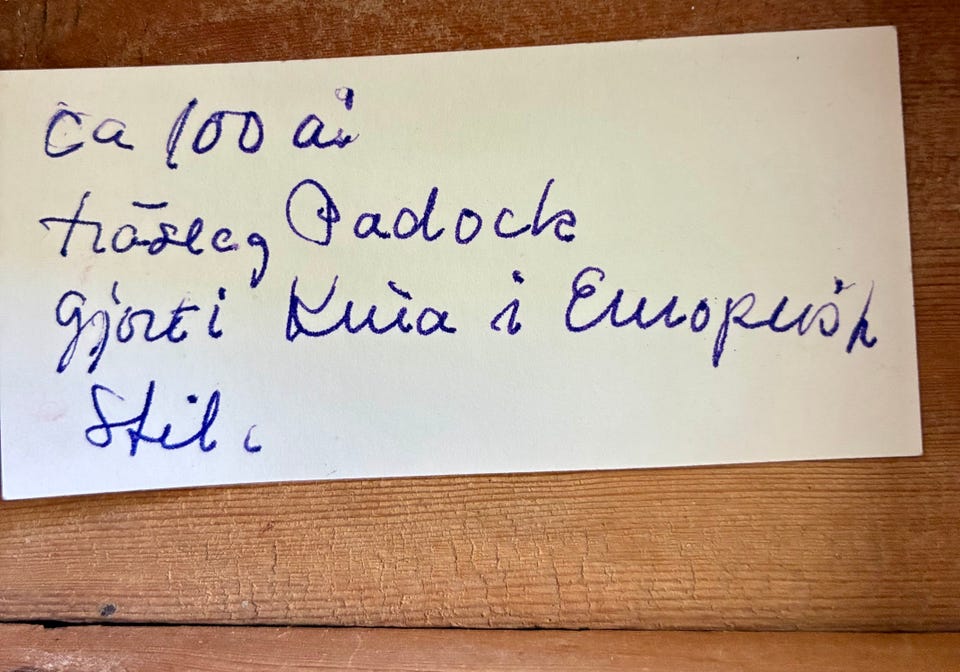 Ca 100 år
träslag Padock
gjort i Kina i Europeisk
Stil.